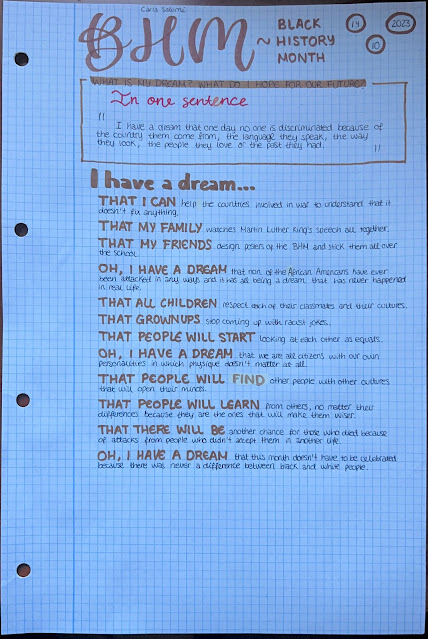 Carla Salomi
BHM ~ BLACK
HISTORY
MONTH
14
10
2023
WHAT IS MY DREAM? WHAT DO I HOPE FOR OUR FUTURE?
In one sentence
"
I have a dream that one day no one is discriminated because of
the country them come from, the language they speak, the way
they look, the people they love or the past they had.
"
I have a dream...
THAT I CAN help the countries involved in war to understand that it
doesn't fix anything.
THAT MY FAMILY watches Martin Luther King's speech all together.
THAT MY FRIENDS design posters of the BHM and stick them all over
the school.
OH, I HAVE A DREAM that non of the African Americans have ever
been attacked in any way and it was all being a dream that has never happened
in real life.
THAT ALL CHILDREN respect each of their classmates and their cultures.
THAT GROWNUPS stop coming up with racist jokes.
THAT PEOPLE WILL START looking at each other as equals.
OH, I HAVE A DREAM that we are all citizens with our own
personalities in which physique doesn't matter at all.
THAT PEOPLE WILL FIND other people with other cultures
that will open their minds.
THAT PEOPLE WILL LEARN from others, no matter their
differences because they are the ones that will make them wiser.
THAT THERE WILL BE another chance for those who died because
of attacks from people who didn't accept them in another life.
OH, I HAVE A DREAM that this month doesn't have to be celebrated
because there was never a difference between back and white people.